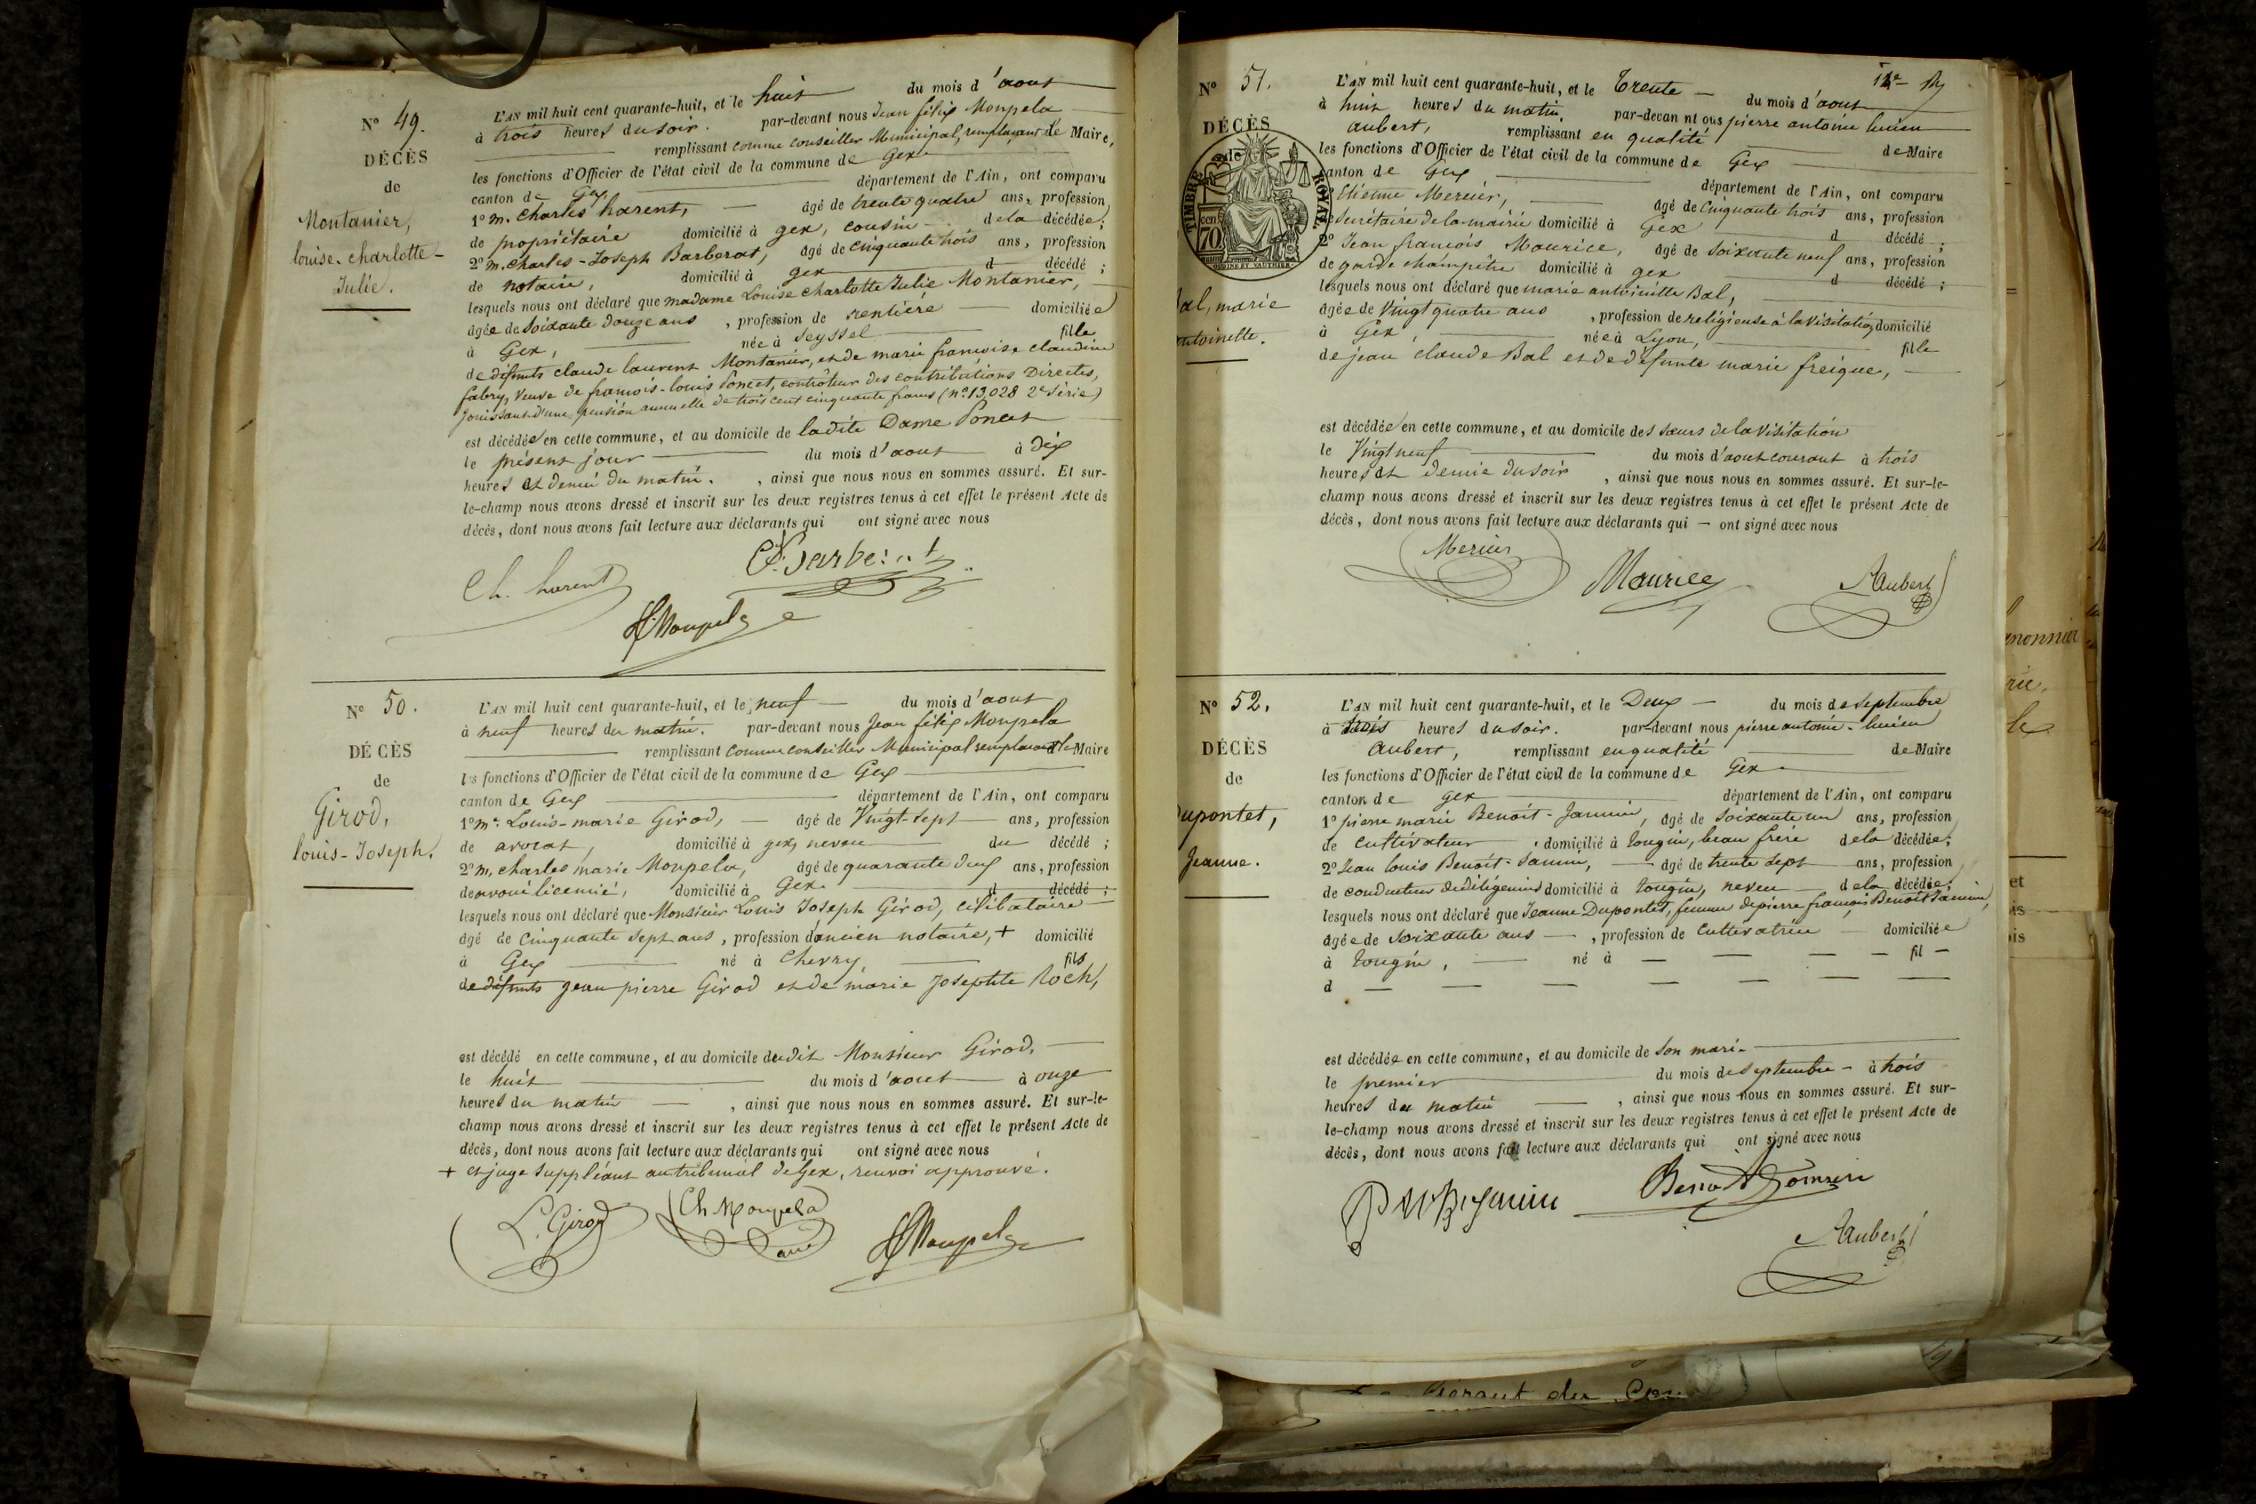 N° 49.
DÉCÈS
de
Montanier,
louise-charlotte-
Julie.
L'AN mil huit cent quarante-huit, et le huit du mois d'aout
à trois heures du soir. par-devant nous Jean félix Monpela
remplissant comme conseiller Municipal, remplaçant le Maire,
les fonctions d'Officier de l'état civil de la commune de Gex
canton de Gex département de l'Ain, ont comparu
1° m. Charles harent, âgé de trente quatre ans, profession
de propriétaire domicilié à gex, cousin de la décédée;
2° m. Charles-Joseph Barberat, âgé de cinquante trois ans, profession
de notaire, domicilié à gex d décédé ;
lesquels nous ont déclaré que madame Louise charlotte Julie Montanier,
âgée de Soixante douze ans , profession de rentière domiciliée
à Gex, née à Seyssel fille
de défunts claude laurent Montanier, et de marie françoise claudine
fabry, Veuve de françois-louis Poncet, contrôleur des contributions Directes,
jouissant d'une pension annuelle de trois cent cinquante francs (n° 13,028 2e Série)
est décédée en cette commune, et au domicile de ladite Dame Poncet
le présent jour du mois d'aout à dix
heures et demie du matin. , ainsi que nous nous en sommes assuré. Et sur-
le-champ nous avons dressé et inscrit sur les deux registres tenus à cet effet le présent Acte de
décès, dont nous avons fait lecture aux déclarants qui ont signé avec nous
Ch. harent
Monpela
N° 50.
DÉCÈS
de
Girod,
louis-Joseph.
L'AN mil huit cent quarante-huit, et le neuf du mois d'aout
à neuf heures du matin. par-devant nous Jean félix Monpela
remplissant comme conseiller Municipal remplaçant le Maire
les fonctions d'Officier de l'état civil de la commune de Gex
canton de Gex département de l'Ain, ont comparu
1° mr. Louis-marie Girod, âgé de Vingt-sept ans, profession
de avocat, domicilié à gex, neveu du décédé ;
2° m. charles marie Monpela, âgé de quarante deux ans, profession
de avoué licencié, domicilié à Gex. d décédé ;
lesquels nous ont déclaré que Monsieur Louis Joseph Girod, célibataire
âgé de cinquante sept ans, profession d'ancien notaire, + domicilié
à Gex né à Chevry, fils
de défunts jean pierre Girod et de marie Josephte Roch,
est décédé en cette commune, et au domicile dudit Monsieur Girod.
le huit du mois d'aout à onze
heures du matin , ainsi que nous nous en sommes assuré. Et sur-le-
champ nous avons dressé et inscrit sur les deux registres tenus à cet effet le présent Acte de
décès, dont nous avons fait lecture aux déclarants qui ont signé avec nous
+ et juge suppléant au tribunal de Gex, renvoi approuvé.
L. Girod
Ch Monpela
Monpela
N° 51.
DÉCÈS
de
TIMBRE ROYAL
70
Bal, marie
antoinette.
L'AN mil huit cent quarante-huit, et le Trente du mois d'aout
à huit heures du matin. par-devan nt ous pierre antoine lucien
aubert, remplissant en qualité de Maire
les fonctions d'Officier de l'état civil de la commune de Gex
canton de Gex département de l'Ain, ont comparu
1° Etienne Mercier, âgé de cinquante trois ans, profession
de Secrétaire de la mairie domicilié à Gex d décédé ;
2° Jean françois Maurice, âgé de Soixante neuf ans, profession
de garde champêtre domicilié à gex d décédé ;
lesquels nous ont déclaré que marie antoinette Bal,
âgée de Vingt quatre ans , profession de religieuse à la Visitation, domicilié
à Gex née à Lyon, fille
de jean claude Bal et de défunte marie freique,
est décédée en cette commune, et au domicile des sœurs de la Visitation
le Vingt neuf du mois d'aout courant à trois
heures et demie du soir , ainsi que nous nous en sommes assuré. Et sur-le-
champ nous avons dressé et inscrit sur les deux registres tenus à cet effet le présent Acte de
décès, dont nous avons fait lecture aux déclarants qui ont signé avec nous
Mercier
Maurice
Aubert
N° 52.
DÉCÈS
de
Dupontet,
Jeanne.
L'AN mil huit cent quarante-huit, et le Deux du mois de Septembre
à trois heures du soir. par-devant nous pierre antoine-lucien
Aubert, remplissant en qualité de Maire
les fonctions d'Officier de l'état civil de la commune de Gex
canton de gex département de l'Ain, ont comparu
1° pierre marie Benoit-Jannin, âgé de Soixante un ans, profession
de cultivateur domicilié à tougin, beau frère de la décédée;
2° Jean louis Benoit-Jannin, âgé de trente sept ans, profession
de conducteur de diligences domicilié à tougin, neveu de la décédée;
lesquels nous ont déclaré que Jeanne Dupontet, femme de pierre françois Benoit Jannin,
âgée de Soixante ans , profession de cultivatrice domiciliée
à tougin, né à fil
d
est décédée en cette commune, et au domicile de son mari.
le premier du mois de septembre à trois
heures du matin , ainsi que nous nous en sommes assuré. Et sur-
le-champ nous avons dressé et inscrit sur les deux registres tenus à cet effet le présent Acte de
décès, dont nous avons fait lecture aux déclarants qui ont signé avec nous
Benoit Jannin
Aubert